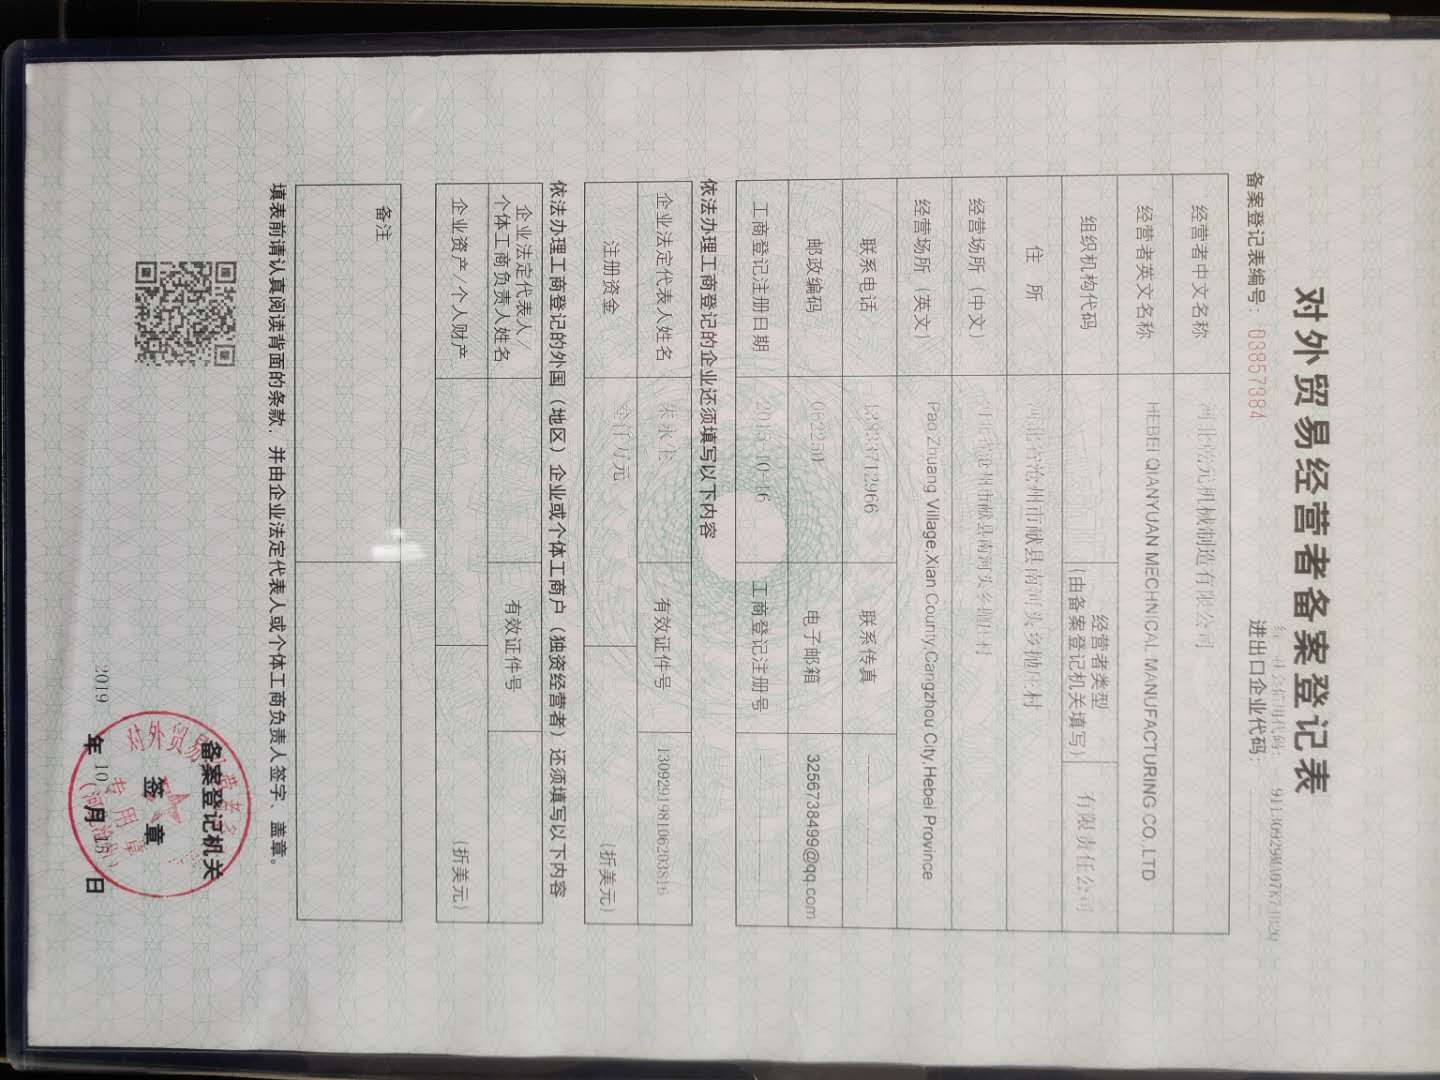 对外贸易经营者备案登记表
统一社会信用代码:
备案登记表编号: 03857384 进出口企业代码:
经营者中文名称 河北乾元机械制造有限公司
经营者英文名称 HEBEI QIANYUAN MECHNICAL MANUFACTURING CO.,LTD
组织机构代码 经营者类型 有限责任公司
(由备案登记机关填写)
住 所 河北省沧州市献县南河头乡抛庄村
经营场所(中文) 河北省沧州市献县南河头乡抛庄村
经营场所(英文) Pao Zhuang Village,Xian County,Cangzhou City,Hebei Province
联系电话 13833712966 联系传真
邮政编码 062250 电子邮箱 3256738499@qq.com
工商登记注册日期 2015-10-16 工商登记注册号
依法办理工商登记的企业还须填写以下内容
企业法定代表人姓名 有效证件号 130929198106203816
注册资金 (折美元)
依法办理工商登记的外国(地区)企业或个体工商户(独资经营者)还须填写以下内容
企业法定代表人/
个体工商负责人姓名 有效证件号
企业资产/个人财产 (折美元)
备注
填表前请认真阅读背面的条款,并由企业法定代表人或个体工商负责人签字、盖章。
备案登记机关
签 章
2019 年 10 月 日
对外贸易
专用章